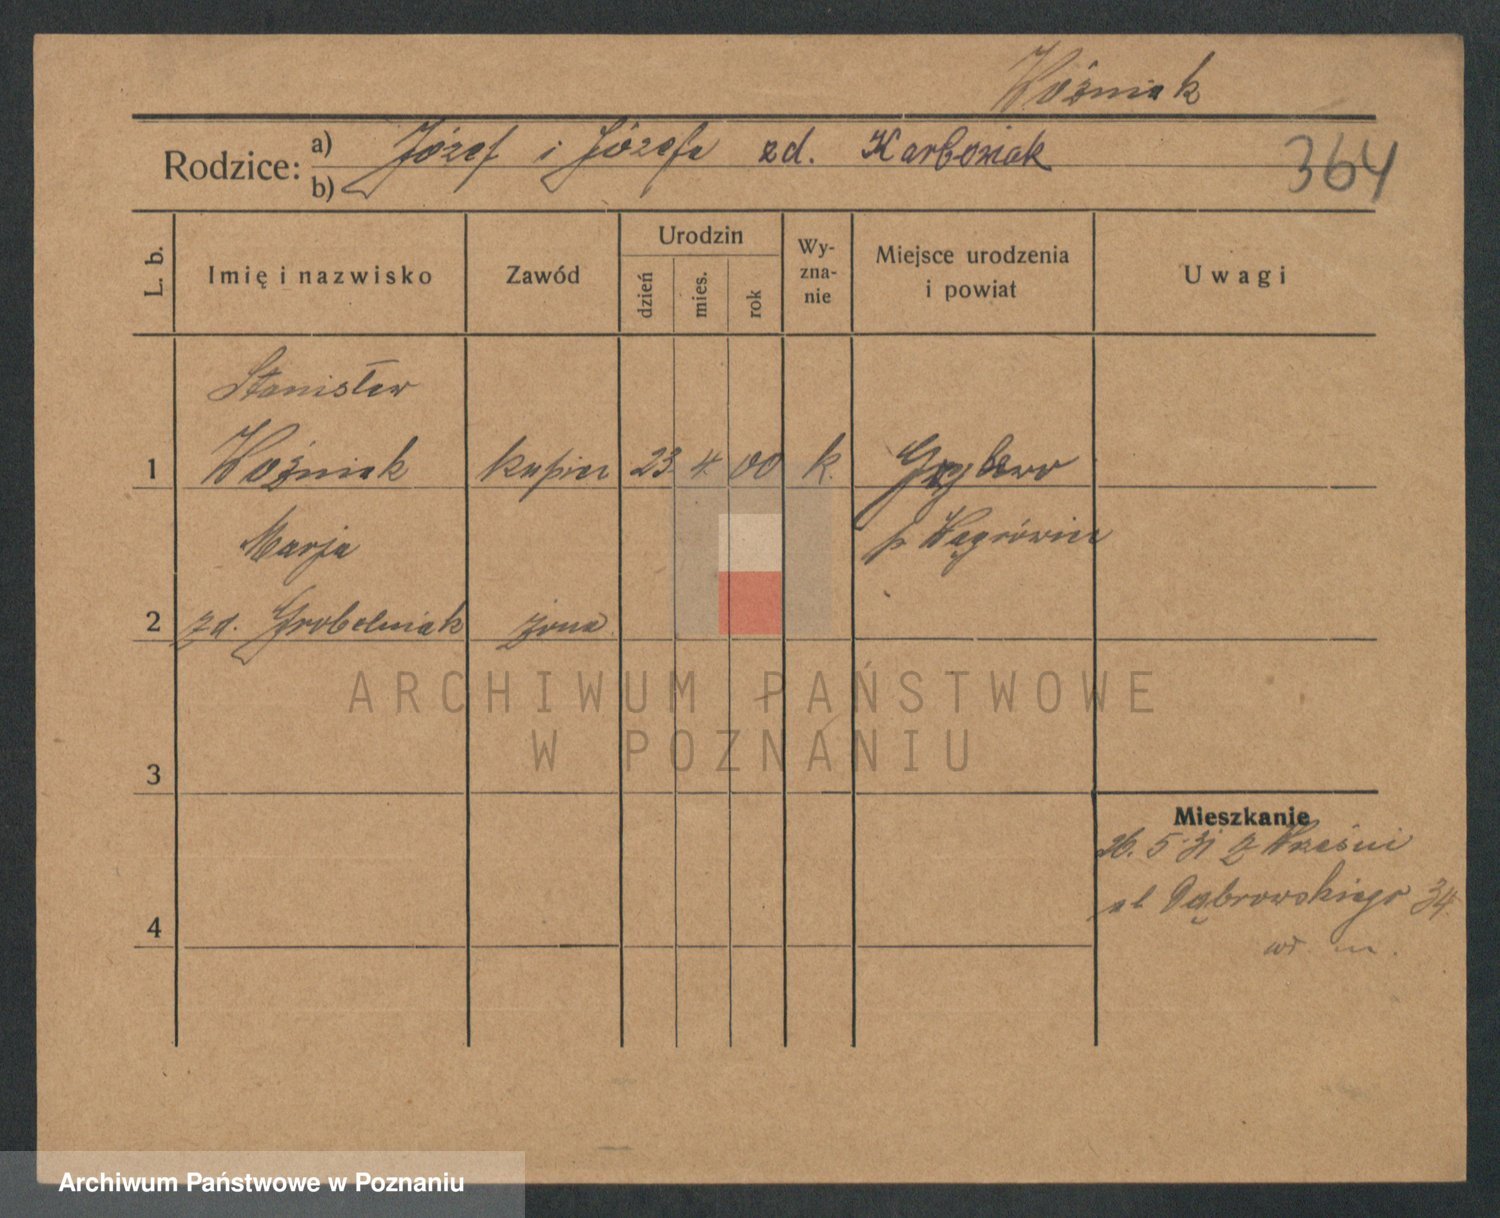 Woźniak
Rodzice: a) Józef i Józefa zd. Karboniak
b)
364
L. b.
Imię i nazwisko
Zawód
Urodzin
dzień
mies.
rok
Wy-
zna-
nie
Miejsce urodzenia
i powiat
Uwagi
Stanisław
1 Woźniak kupiec 23. 4. 00 k. Grzybowo
Marja p Wągrowiec
2 zd. Grobelniak żona
3
4
Mieszkanie
26. 5. 31 z Wrześni
ul Dąbrowskiego 34.
w. m.
ARCHIWUM PAŃSTWOWE
W POZNANIU
Archiwum Państwowe w Poznaniu